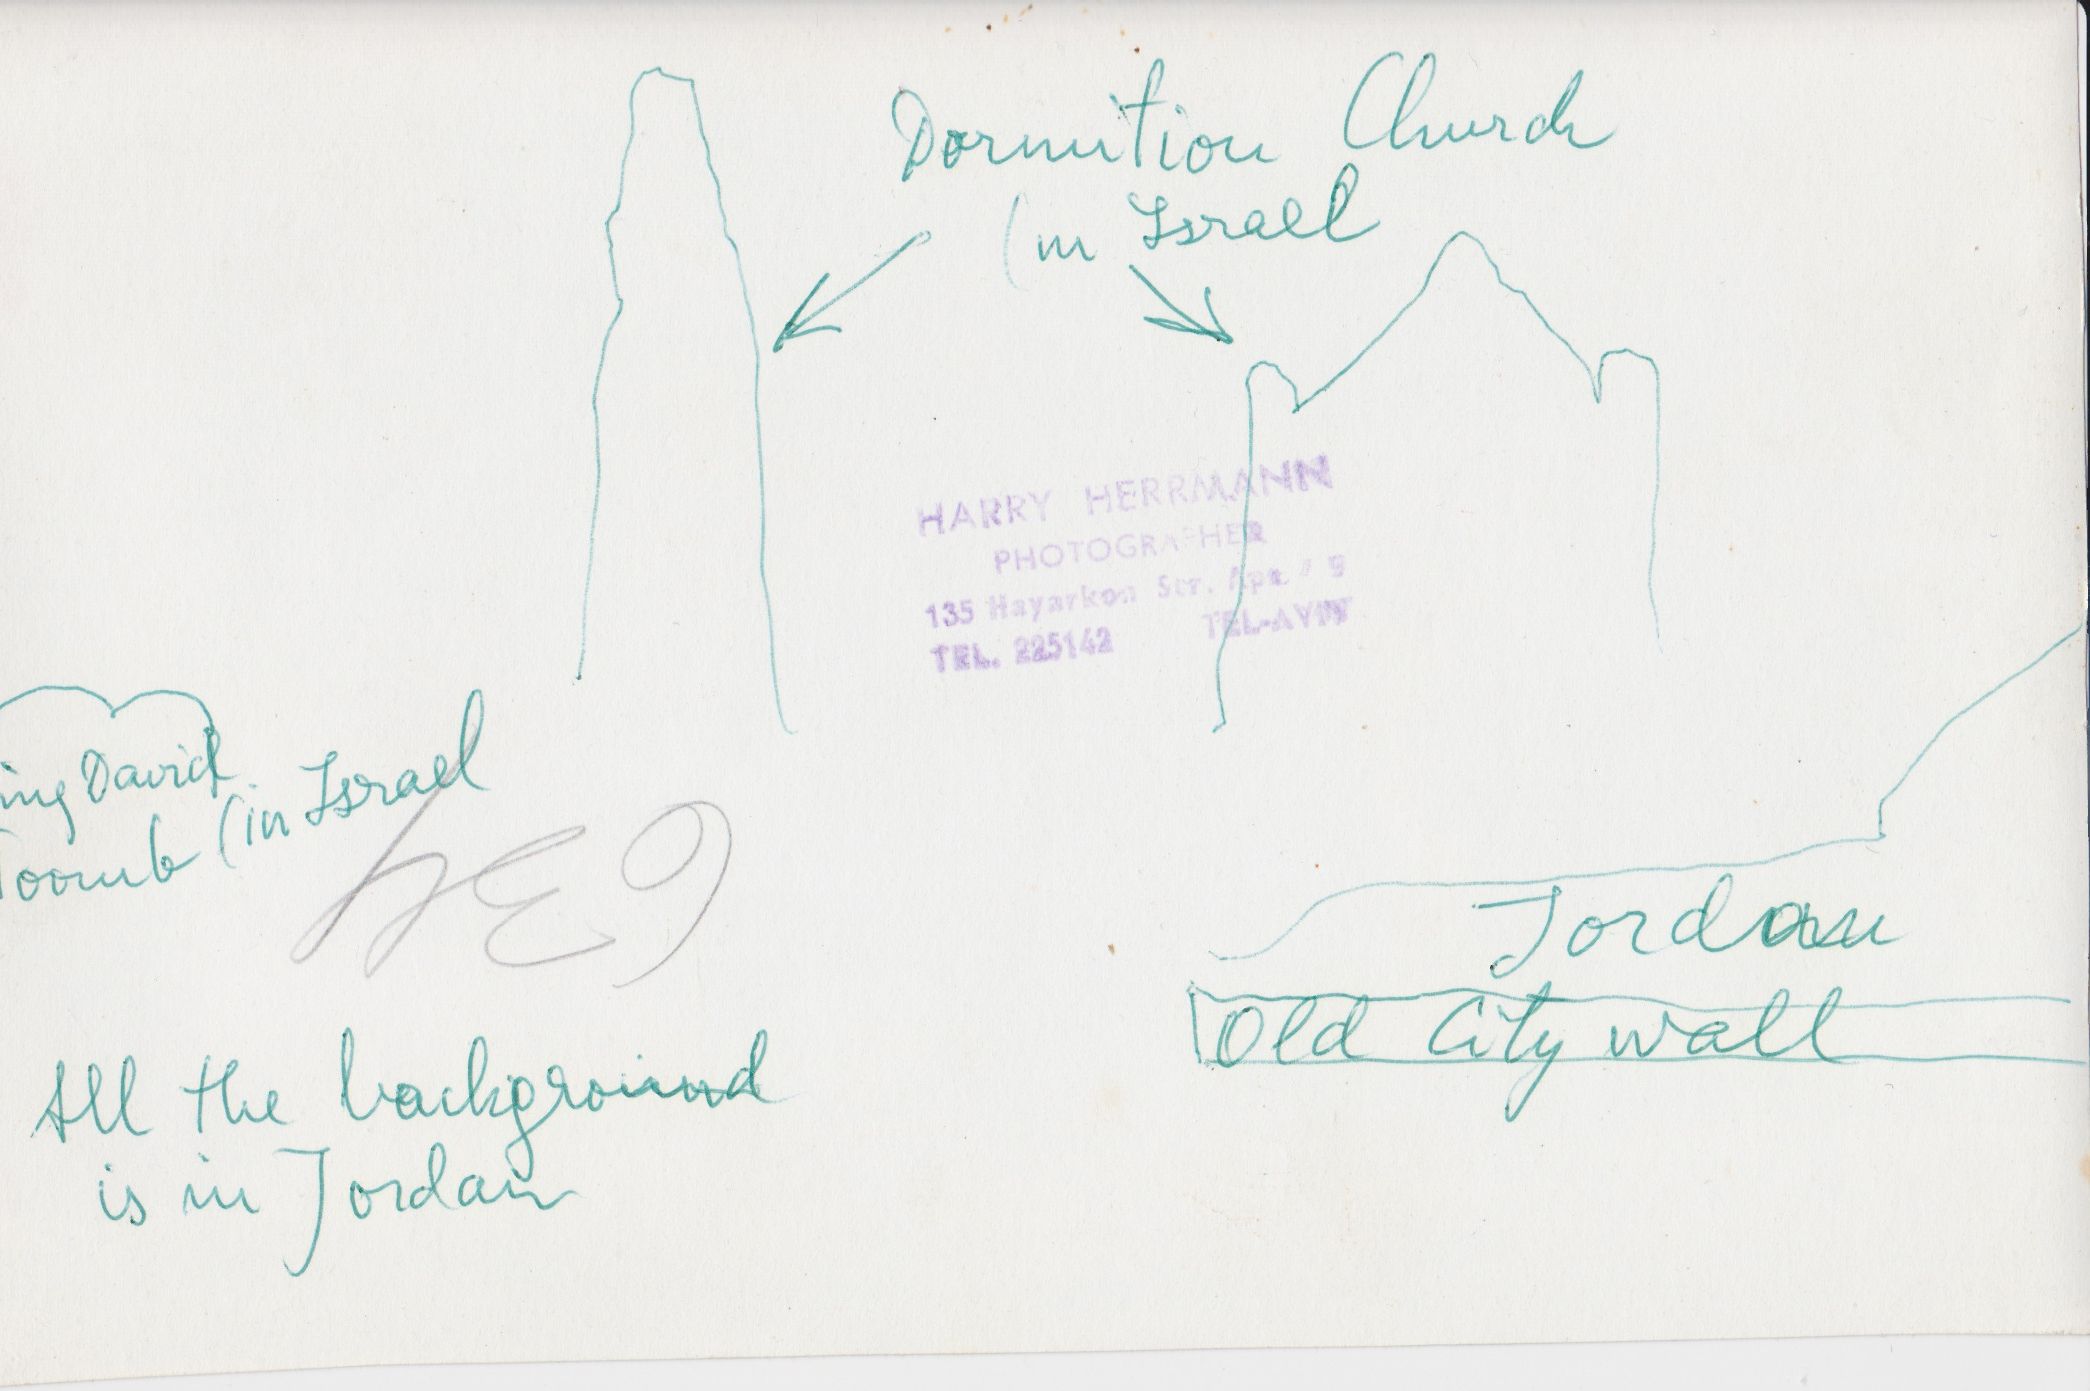 Dormition Church
(in Israel
HARRY HERRMANN
PHOTOGRAPHER
135 Hayarkon Str. Apt.
TEL. 225142 TEL-AVIV
ing David
Toomb (in Israel
Jordan
Old City wall
All the background
is in Jordan